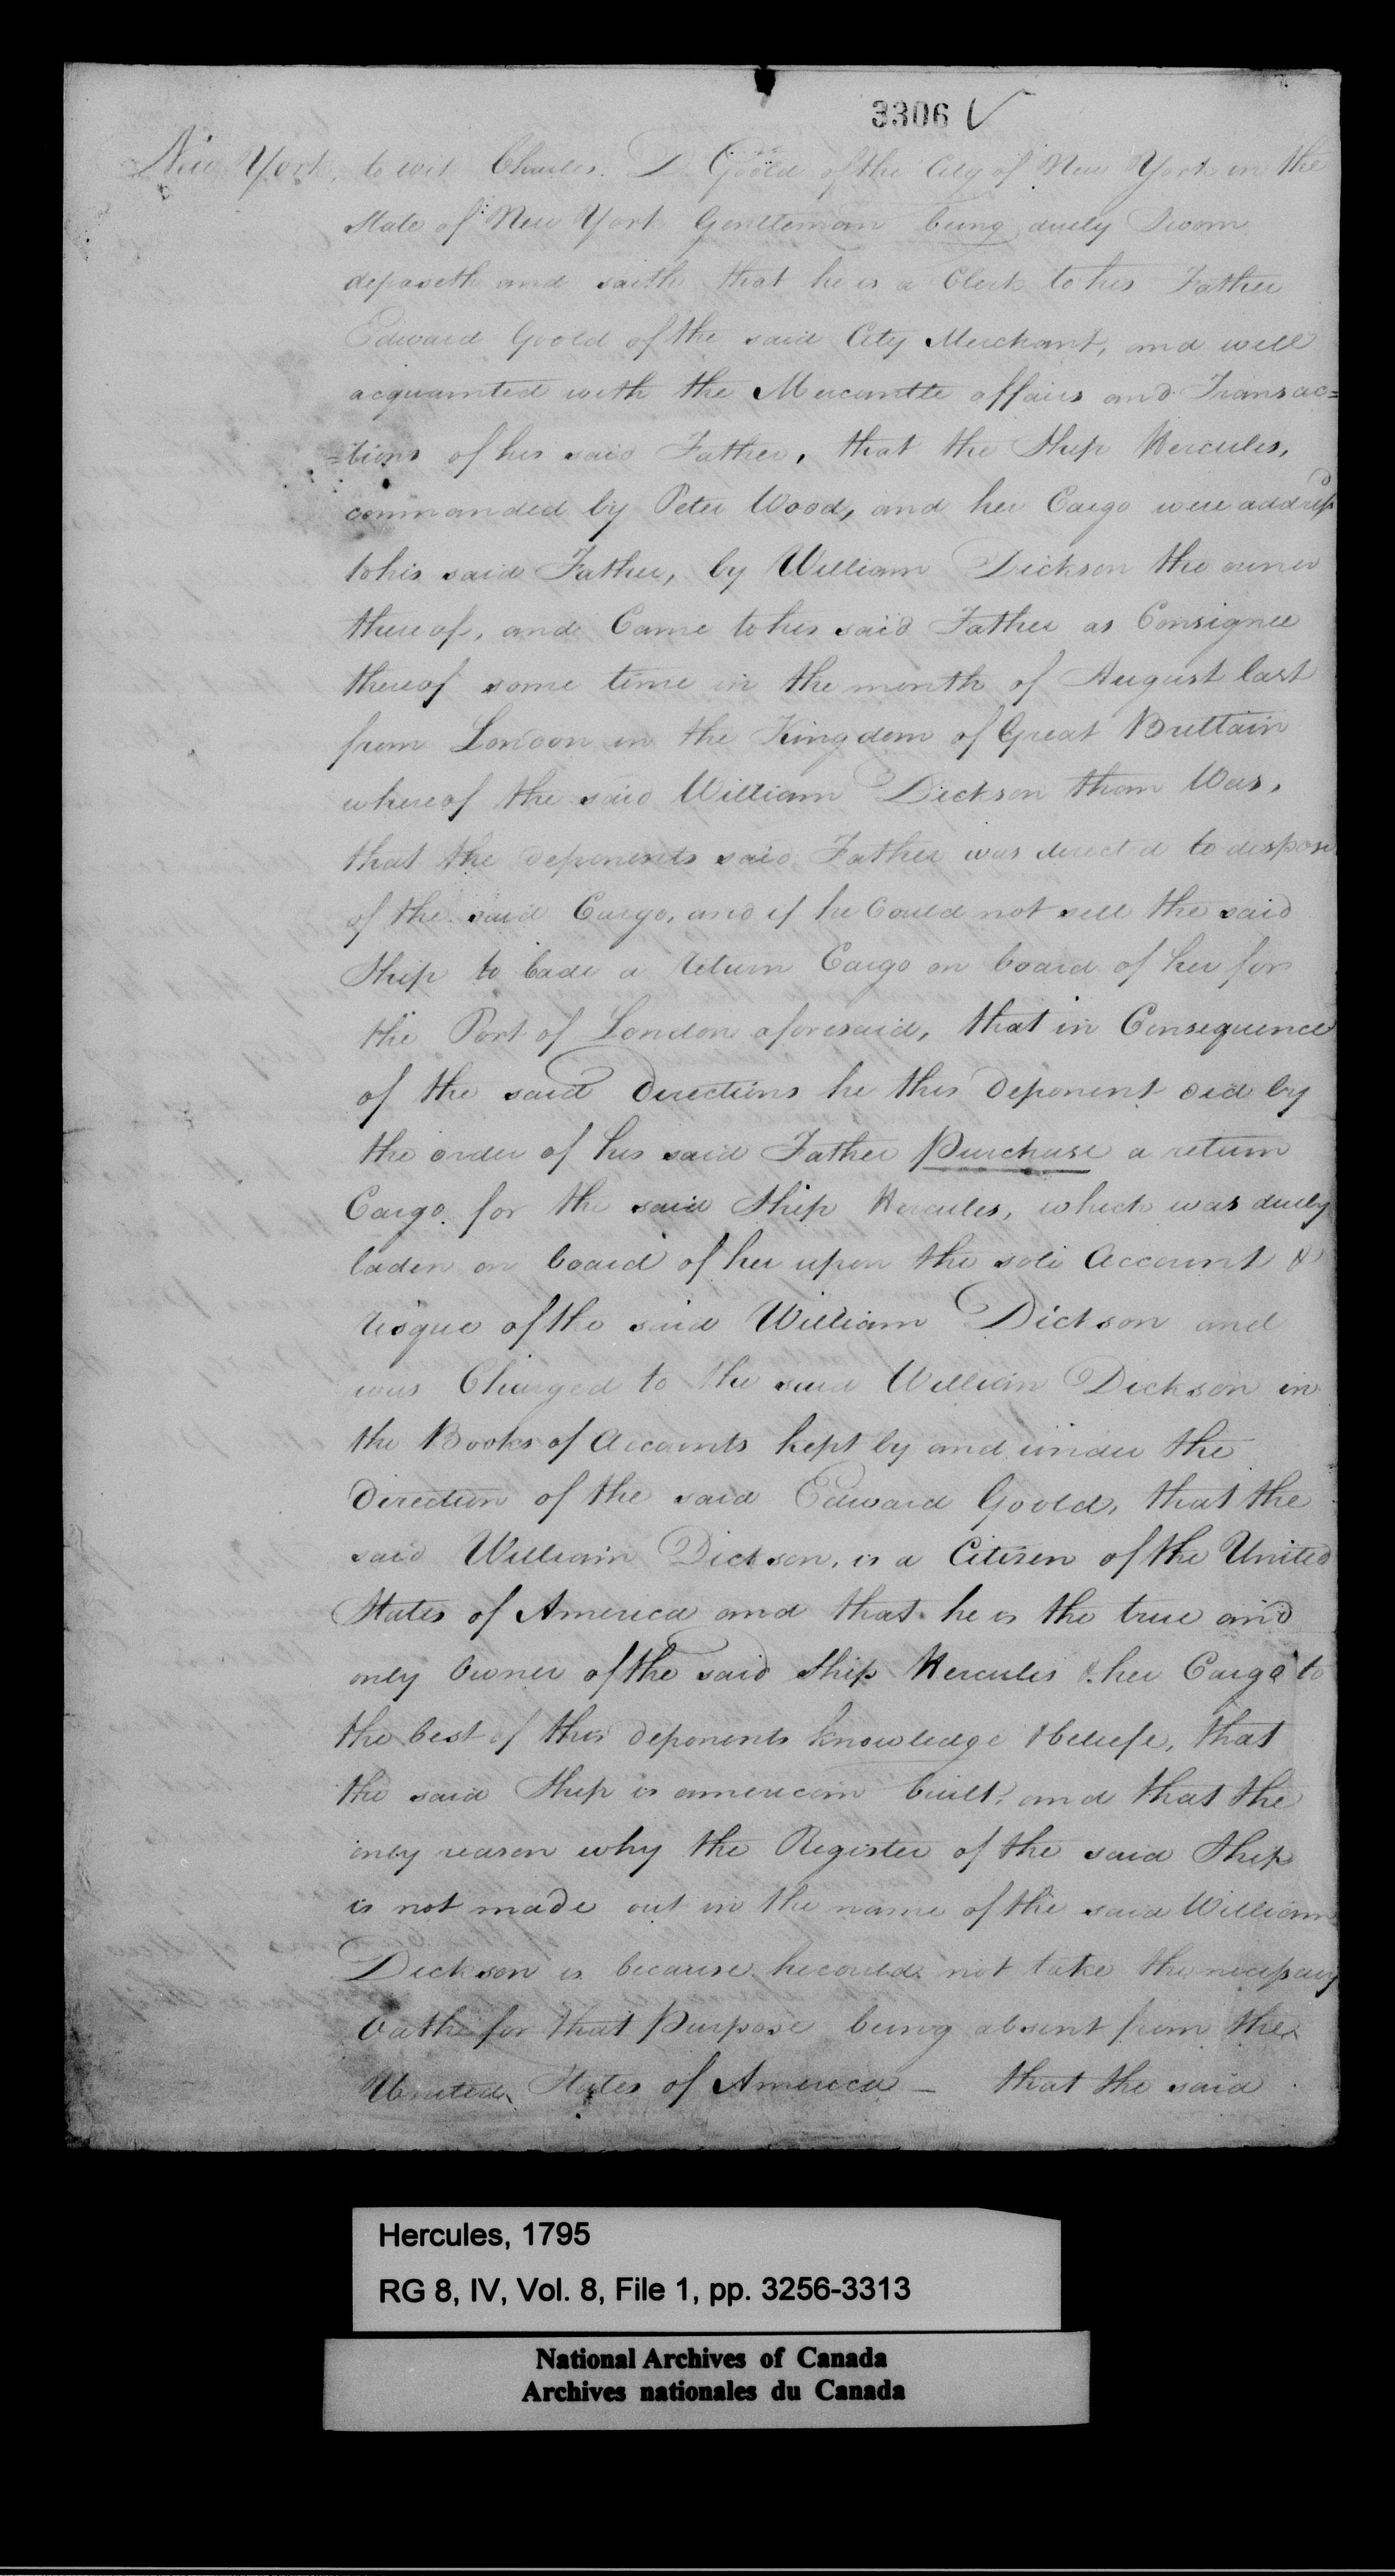 3306
New York, to wit Charles D. Goold of the City of New York in the
State of New York Gentleman being duely Sworn
deposeth and saith that he is a Clerk to his Father
Edward Goold of the said City Merchant, and well
acquainted with the Mercantle affairs and Transac=
=tions of his said Father, that the Ship Hercules,
commanded by Peter Wood, and her Cargo were
to his said Father, by William Dickson the owner
thereof, and Came to his said Father as Consignee
thereof some time in the month of August last
from London in the Kingdom of Great Brittain
whereof the said William Dickson Was,
that the deponents said Father was directed to dispose
of the said Cargo, and if he Could not sell the said
Ship to lade a return Cargo on board of her for
the Port of London aforesaid, that in Consequence
of the said Directions he this Deponent did by
the order of his said Father Purchase a return
Cargo for the said Ship Hercules, which was duely
laden on board of her upon the sole Account &
risque of the said William Dickson and
was Charged to the said William Dickson in
the Books of Accounts kept by and under the
Direction of the said Edward Goold, that the
said William Dickson, is a Citizen of the United
States of America and that he is the true and
only Owner of the said Ship Hercules & her Cargo to
the best of this deponents knowledge & beliefe, that
the said Ship is american built, and that the
only reason why the Register of the said Ship
is not made out in the name of the said William
Dickson is because he could not take the necessary
Oaths for that Purpose being absent from the
United States of America — that the said
Hercules, 1795
RG 8, IV, Vol. 8, File 1, pp. 3256-3313
National Archives of Canada
Archives nationales du Canada